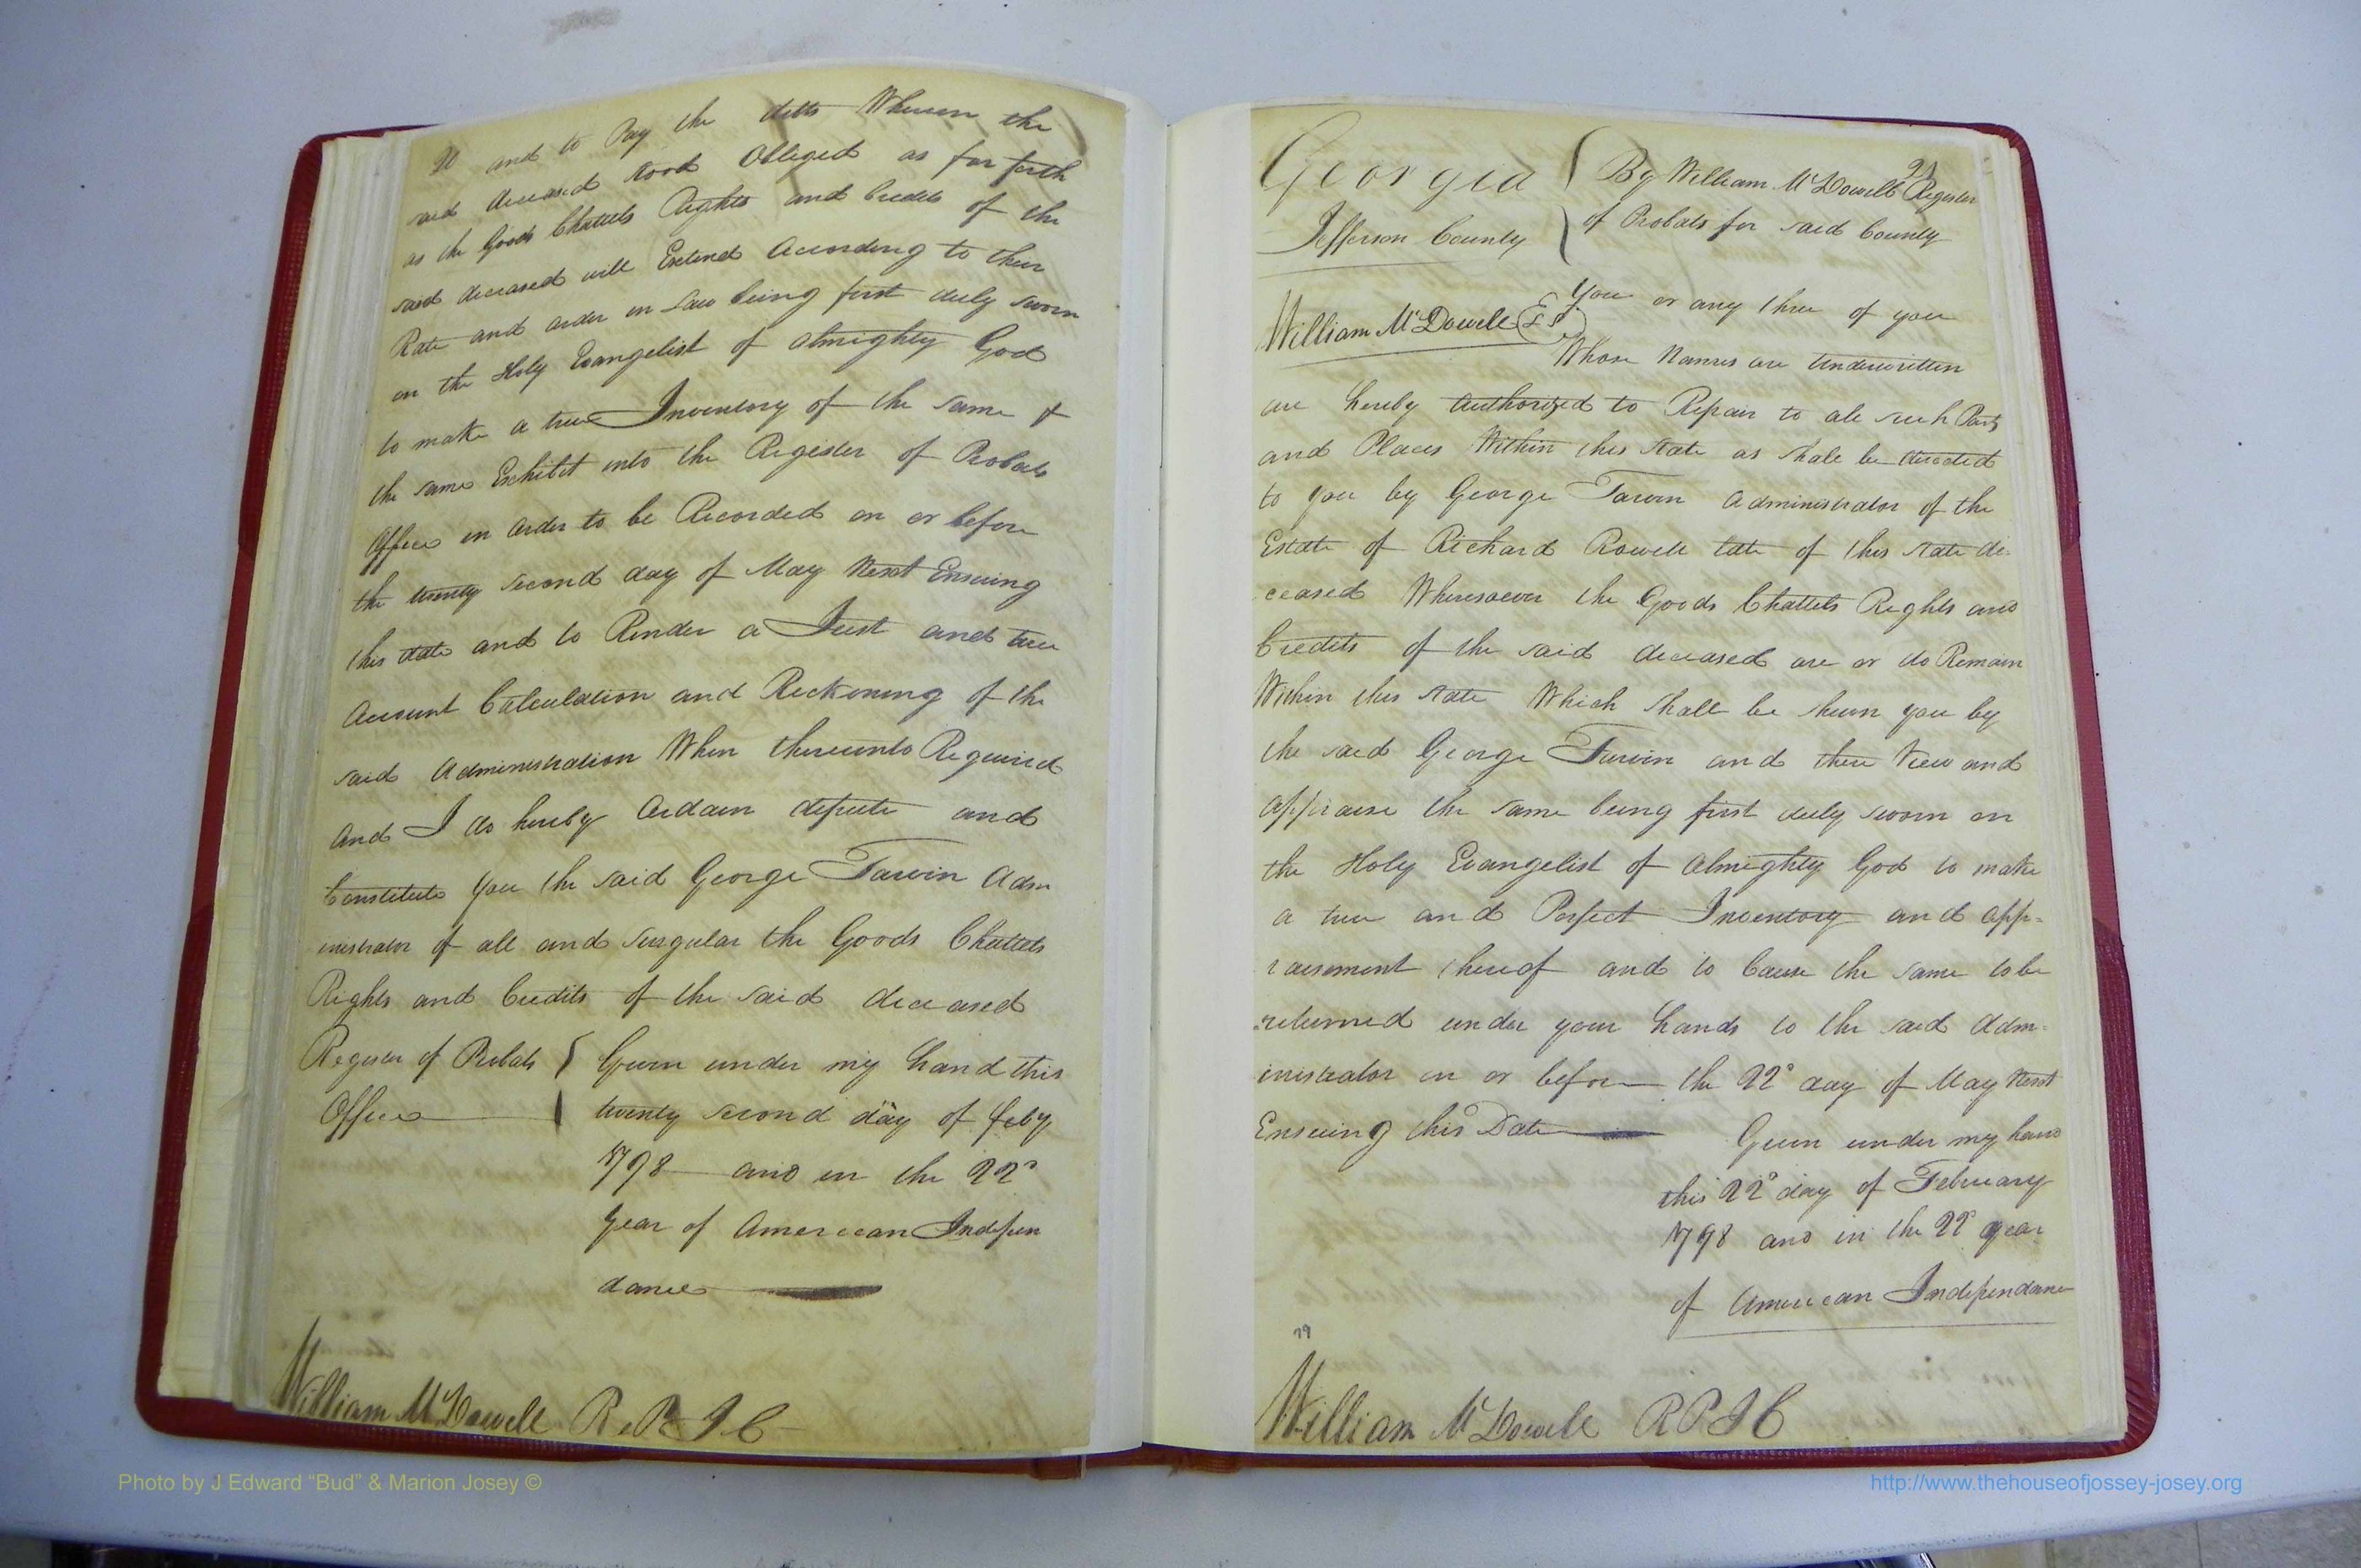 and to Pay the debts Wherein the
said deceased stood Obliged as far forth
as the Goods Chattels Rights and Credits of the
said deceased will Extend According to their
Rate and order in Law being first duly sworn
on the Holy Evangelist of almighty God
to make a true Inventory of the same &
the same Exhibit into the Register of Probats
Office in order to be Recorded on or before
the twenty second day of May Next Ensuing
this date and to Render a Just and true
Account Calculation and Reckoning of the
said Administration When thereunto Required
And I do hereby Ordain depute and
Constitute you the said George Tarvin Adm
inistrator of all and Singular the Goods Chattels
Rights and Credits of the said deceased
Register of Probats Given under my hand this
Office twenty second day of feby
1798 and in the 22d
year of American Indepen
dance
William McDowell R P J C
Georgia By William McDowell Register
Jefferson County of Probats for said County
William McDowell L S You or any three of you
Whose Names are Underwritten
are hereby Authorized to Repair to all such Parts
and Places Within this State as Shall be directed
to you by George Tarvin Administrator of the
Estate of Richard Rowell late of this State de-
ceased Wheresoever the Goods Chattels Rights and
Credits of the said deceased are or do Remain
Within this State Which Shall be shewn you by
the said George Tarvin and there View and
appraise the same being first duly sworn on
the Holy Evangelist of Almighty God to make
a true and Perfect Inventory and app=
raisement thereof and to Cause the same to be
returned under your hands to the said Adm=
inistrator on or before the 22d day of May Next
Ensuing this Date Given under my hand
this 22d day of February
1798 and in the 22d year
of American Independance
79
William McDowell R P J C
Photo by J Edward “Bud” & Marion Josey ©
http://www.thehouseofjossey-josey.org